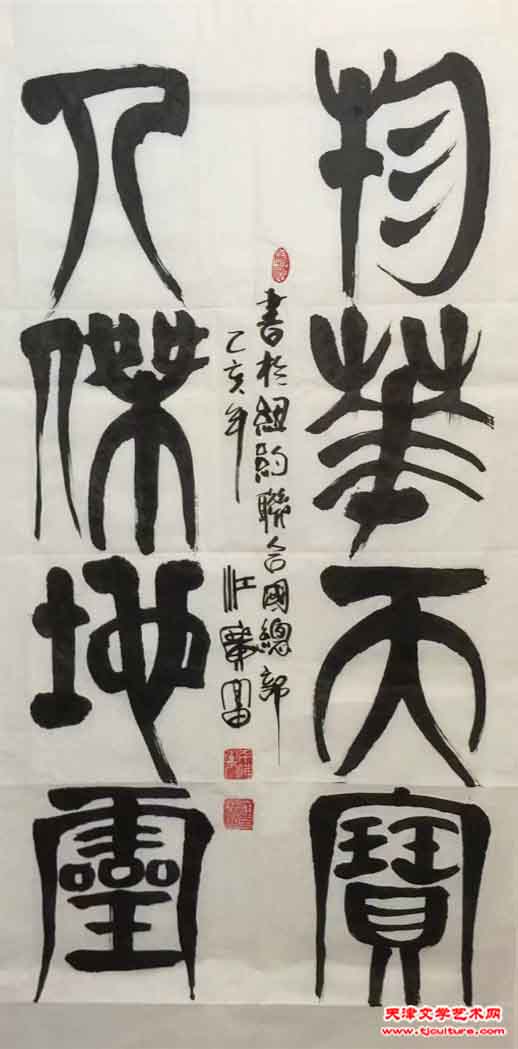 物華天寶
人傑地靈
書於紐約聯合國總部
乙亥年
江廣富
天津文学艺术网
www.tjculture.com